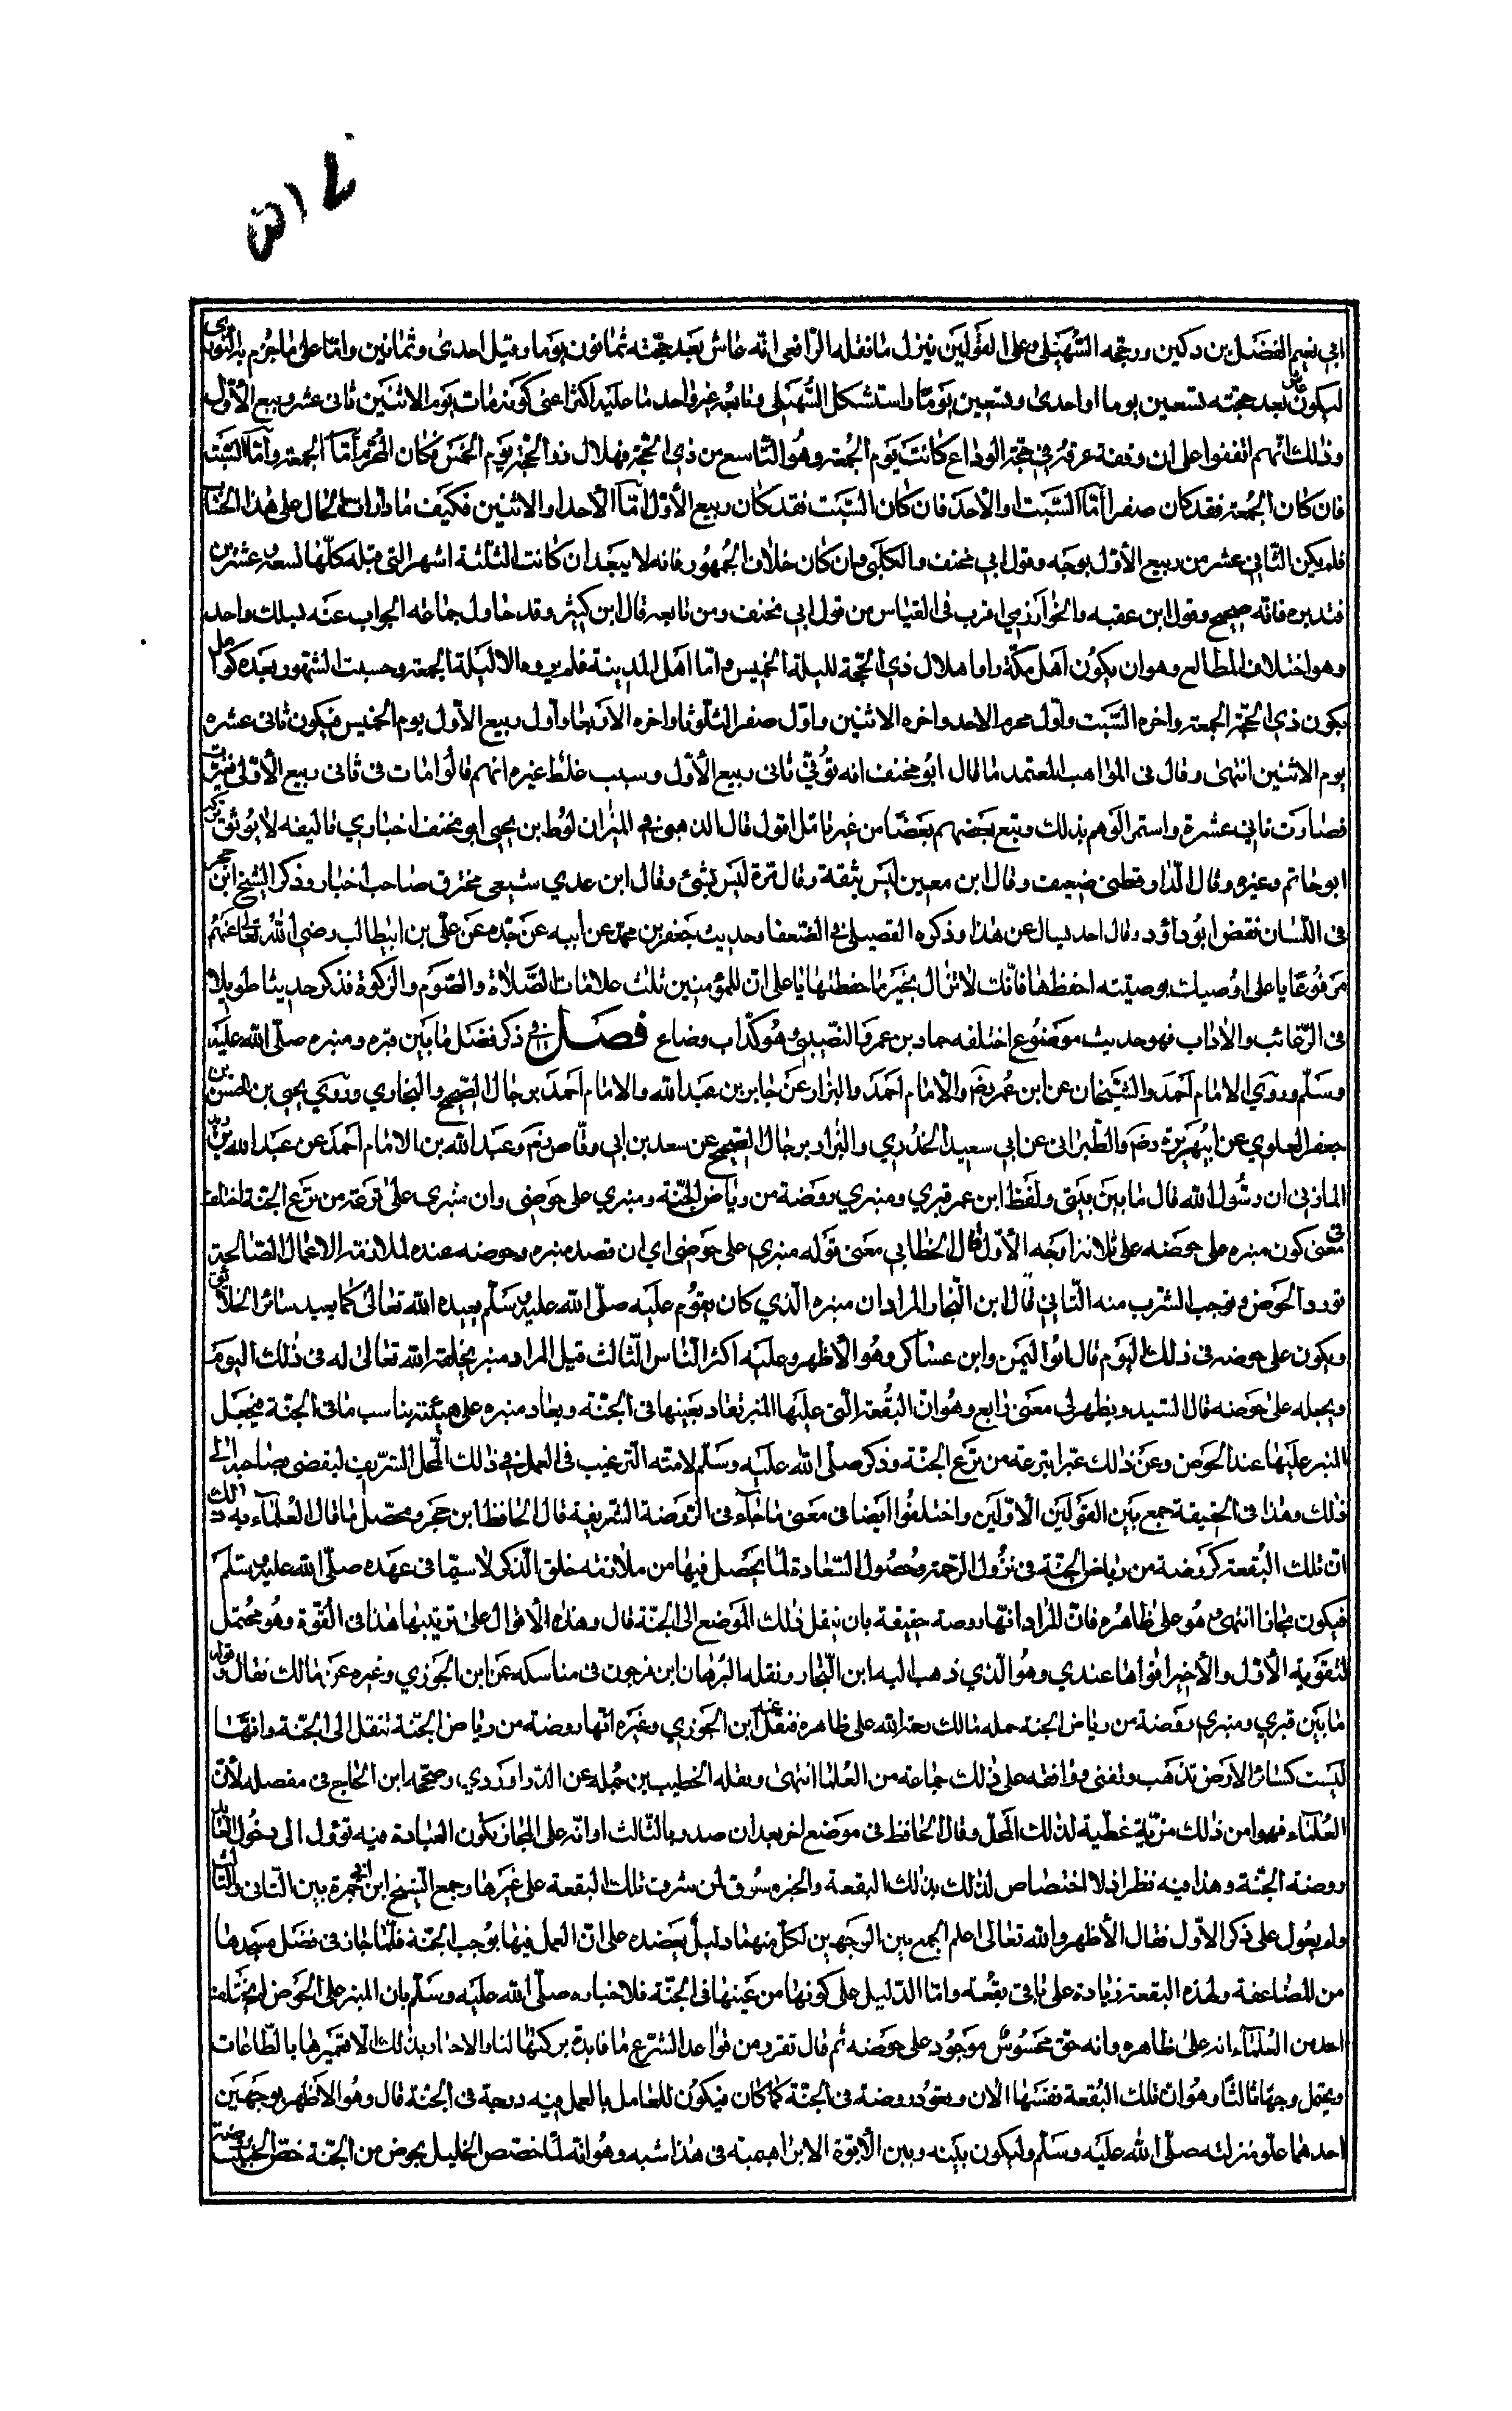 ابي نعيم الفضل بن دكين ورجحه السهيلى وعلى القولين ينزل ما نقله الرافعى انه عاش بعد حجته ثمانون يوما وقيل احدى وثمانين واما على ما جزم به النووى
ليكون عاش بعد حجته تسعين يوما او احدى وتسعين يوما واستشكل السهيلى وتابعه غير واحد ما عليه اكثر اعنى كونه مات يوم الاثنين ثانى عشر ربيع الأول
وذلك انهم اتفقوا على ان وقفة عرفة في حجة الوداع كانت يوم الجمعة وهو التاسع من ذي الحجة فهلال ذو الحجة يوم الخمس فكان المحرم اما الجمعة واما السبت
فان كان الجمعة فقد كان صفر اما السبت او الأحد فان كان السبت فقد كان ربيع الأول اما الأحد او الاثنين فكيف ما دارت الحال على هذا الحساب
فلم يكن الثاني عشر من ربيع الأول بوجه وقول ابي مخنف والكلبى وان كان خلاف الجمهور فانه لا يبعد ان كانت الثلثة اشهر التى قبله كلها تسعه وعشرين
فتدبره فانه صحيح وقول ابن عقبه والخوارزمي اقرب فى القياس من قول ابي مخنف ومن تابعه قال ابن كثير وقد حاول جماعة الجواب عنه بمسلك واحد
وهو اختلاف المطالع وهو ان يكون اهل مكة راوا هلال ذي الحجة لليلة الخميس واما اهل المدينة فلم يروه الا ليلة الجمعة وحسبت الشهور بعده كوامل
بكون ذي الحجة الجمعة واخره السبت واول محرم الاحد واخره الاثنين واول صفر الثلوثا واخره الأربعا واول ربيع الأول يوم الخميس فيكون ثانى عشره
يوم الاثنين انتهى وقال فى المواهب المعتمد ما قال ابو مخنف انه توفى ثانى ربيع الأول وسبب غلط غيره انهم قالوا مات فى ثانى ربيع الأول فغيرت
فصارت ثاني عشرة واستمر الوهم بذلك وتبع بعضهم بعضا من غير تامل اقول قال الذهبى فى الميزان لوط بن يحيى ابو مخنف اخبارى تاليفه لا يوثق تركه
ابو حاتم وغيره وقال الدارقطنى ضعيف وقال ابن معين ليس بثقة وقال مرة ليس بشئ وقال ابن عدي شيعى محترق صاحب اخبار وذكر الشيخ ابن حجر
فى اللسان نقض ابو داؤد وقال احد يسال عن هذا وذكره العقيلى فى الضعفا وحديث جعفر بن محمد عن ابيه عن جده عن على بن ابيطالب رضي الله تعالى عنهم
مرفوعا يا على اوصيك بوصيته احفظها فانك لا تزال بخير ما حفظتها يا على ان للمؤمنين ثلث علامات الصلاة والصوم والزكوة فذكر حديثا طويلا
فى الرغائب والاداب فهو حديث موضوع اختلقه حماد بن عمرو النصيبى وهو كذاب وضاع فصل فى ذكر فضل ما بين قبره ومنبره صلى الله عليه
وسلم وروي الامام احمد والشيخان عن ابن عمر رضه والأمام احمد والبزار عن جابر بن عبد الله والامام احمد برجال الصحيح والبخاري وروي يحيى بن الحسن بن
جعفر العلوي عن ابيهريرة رضه والطبرانى عن ابي سعيد الخدري والبزار برجال الصحيح عن سعد بن ابي وقاص رضه وعبد الله بن الامام احمد عن عبد الله بن زيد
المازني ان رسول الله قال ما بين بيتي ولفظ ابن عمر قبري ومنبري روضة من رياض الجنة ومنبري على حوضى وان منبرى على ترعة من ترع الجنة اختلف
فى معنى كون منبره على حوضه على ثلاثة اوجه الأول قال الخطابي معنى قوله منبري على حوضى اي ان قصد منبره وحوضه عنده لملازمة الاعمال الصالحة
تورد الحوض وتوجب الشرب منه الثاني قال ابن النجار المراد ان منبره الذي كان يقوم عليه صلى الله عليه وسلم يعيده الله تعالى كما يعيد سائر الخلائق
ويكون على حوضه فى ذلك اليوم قال ابو اليمن وابن عساكر وهو الأظهر وعليه اكثر الناس الثالث قيل المراد منبر يخلقه الله تعالى له فى ذلك اليوم
ويجعله على حوضه قال السيد ويظهر لي معنى رابع وهو ان البقعة التى عليها المنبر تعاد بعينها فى الجنة ويعاد منبره على هيئة يناسب ما فى الجنة فيجعل
المنبر عليها عند الحوض وعن ذلك عبر بترعة من ترع الجنة وذكر صلى الله عليه وسلم لامته الترغيب فى العمل فى ذلك المحل الشريف ليفضى بصاحبه الى
ذلك وهذا فى الحقيقة جمع بين القولين الاولين واختلفوا ايضا فى معنى ما جاء فى الروضة الشريفة قال الحافظ ابن حجر ومحصل ما قال العلماء به ذلك
ان تلك البقعة كروضة من رياض الجنة فى نزول الرحمة وحصول السعادة لما يحصل فيها من ملازمة حلق الذكر لا سيما فى عهده صلى الله عليه وسلم
فيكون مجازا انتهى هو على ظاهره فان المراد انها روضة حقيقة بان ينقل ذلك الموضع الى الجنة قال وهذه الاقوال على ترتيبها هذا فى القوة وهو محتمل
لتقوية الأول والأخير اقواها عندي وهو الذي ذهب اليه ابن النجار ونقله البرهان ابن فرحون فى مناسكه عن ابن الجوزي وغيره عن مالك فقال وقوله
ما بين قبري ومنبري روضة من رياض الجنة حمله مالك رحمة الله على ظاهره فنقل عنه ابن الجوزي وغيره انها روضة من رياض الجنة تنقل الى الجنة وانها
ليست كسائر الارض تذهب وتفنى ووافقه على ذلك جماعة من العلما انتهى ونقله الخطيب بن جمله عن الدراوردي وصححه ابن الحاج فى مفصله لأن
العلماء فهموا من ذلك مزية عظيمة لذلك المحل وقال الحافظ فى موضع اخر بعد ان صدر بالثالث او انه على المجاز بكون العبادة فيه توؤل الى دخول العابد
روضة الجنة وهذا فيه نظر اذ لا اختصاص لذلك بذلك البقعة والخبر مسوق لمن شرف تلك البقعة على غيرها وجمع الشيخ ابن ابي جمرة بين الثانى والثالث
ولم يعول على ذكر الاول فقال الأظهر والله تعالى اعلم الجمع بين الوجهين لكل منهما دليل يعضده على ان العمل فيها يوجب الجنة فلما جاز فى فضل مسجدها
من المضاعفة ولهذه البقعة زيادة على باقي بقعه واما الدليل على كونها من عينها فى الجنة فلاخباره صلى الله عليه وسلم بان المنبر على الحوض لم يختلف
احد من العلماء انه على ظاهره وانه حق محسوس موجود على حوضه ثم قال تقرر من قواعد الشرع ما فايدة بركتها لنا والاخبار بذلك الا تعميرها بالطاعات
ويحتمل وجها ثالثا وهو ان تلك البقعة نفسها الان ويعود روضة فى الجنة كما كان فيكون للعامل بالعمل فيه درجة فى الجنة قال وهو الاظهر بوجهين
احدهما علو منزلته صلى الله عليه وسلم وليكون بينه وبين الأبوة الابراهيمية فى هذا شبه وهو انه لما خصص الخليل بحوض من الجنة خص الحبيب بروضة